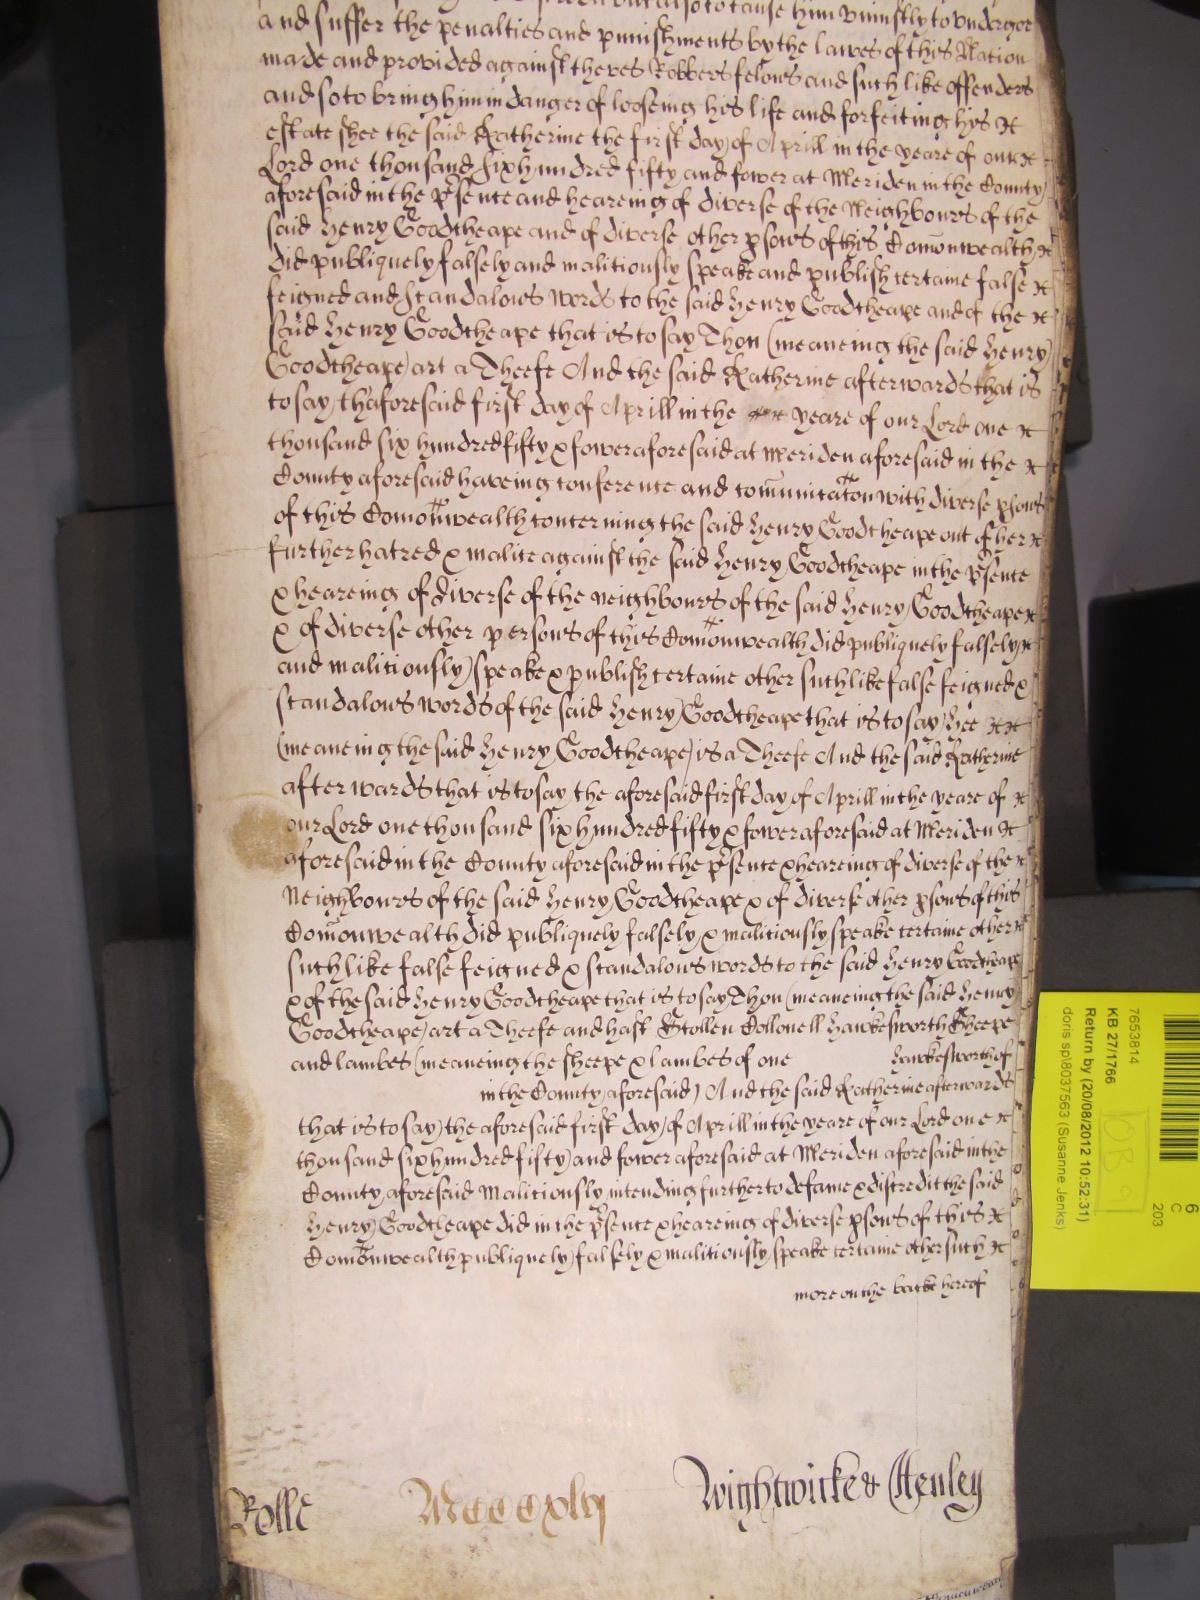 but also to cause him uniustly to undergoe
and suffer the penalties and punishments by the lawes of this Nation
made and provided against theves Robbers felons and such like offenders
and so to bring him in danger of looseing his life and forfeiting his &c
estate shee the said Katherine the first day of Aprill in the yeare of our &c
Lord one thousand six hundred fifty and fower at Meriden in the County
aforesaid in the p'sence and heareing of diverse of the Neighbours of the
said Henry Goodcheape and of diverse other psons of this Comonwealth &c
did publiquely falsely and malitiously speake and publish certaine false &c
feigned and scandalous words to the said Henry Goodcheape and of the &c
said Henry Goodcheape that is to say Thou (meaneing the said Henry
Goodcheape) art a Theefe And the said Katherine afterwards that is
to say thaforesaid first day of Aprill in the yeare of our Lord one &c
thousand six hundred fifty & fower aforesaid at Meriden aforesaid in the &c
County aforesaid haveing conference and comunicaton with diverse psons
of this Comonwealth concerning the said Henry Goodcheape out of her &c
further hatred & malice against the said Henry Goodcheape in the p'sence
& heareing of diverse of the neighbours of the said Henry Goodcheape &c
& of diverse other persons of this Comonwealth did publiquely falsely &c
and malitiously speake & publish certaine other such like false feigned &
scandalous words of the said Henry Goodcheape that is to say Hee &c &c
(meaneing the said Henry Goodcheape) is a Theefe And the said Katherine
afterwards that is to say the aforesaid first day of Aprill in the yeare of &c
our Lord one thousand six hundred fifty & fower aforesaid at Meriden &c
aforesaid in the County aforesaid in the p'sence & heareing of diverse of the &c
Neighbours of the said Henry Goodcheape & of diverse other psons of this
Comonwealth did publiquely falsely & malitiously speake certaine other &c
such like false feigned & scandalous words to the said Henry Goodcheape
& of the said Henry Goodcheape that is to say Thou (meaneing the said Henry
Goodcheape) art a Theefe and hast Stollen Collonell Hawkesworth Sheepe
and lambes (meaneing the sheepe & lambes of one Hawkesworth of
in the County aforesaid) And the said Katherine afterwards
that is to say the aforesaid first day of Aprill in the yeare of our Lord one &c
thousand six hundred fifty and fower aforesaid at Meriden aforesaid in the
County aforesaid Malitiously intending further to defame & discredit the said
Henry Goodcheape did in the p'sence & heareing of diverse psons of this &c
Comonwealth publiquely falsely & malitiously speake certaine other such &c
more on the backe hereof
Rolle
Wightwicke & Henley
7653814
KB 27/1766
Return by (20/08/2012 10:52:31)
doris sp\8037563 (Susanne Jenks)
6
C
203